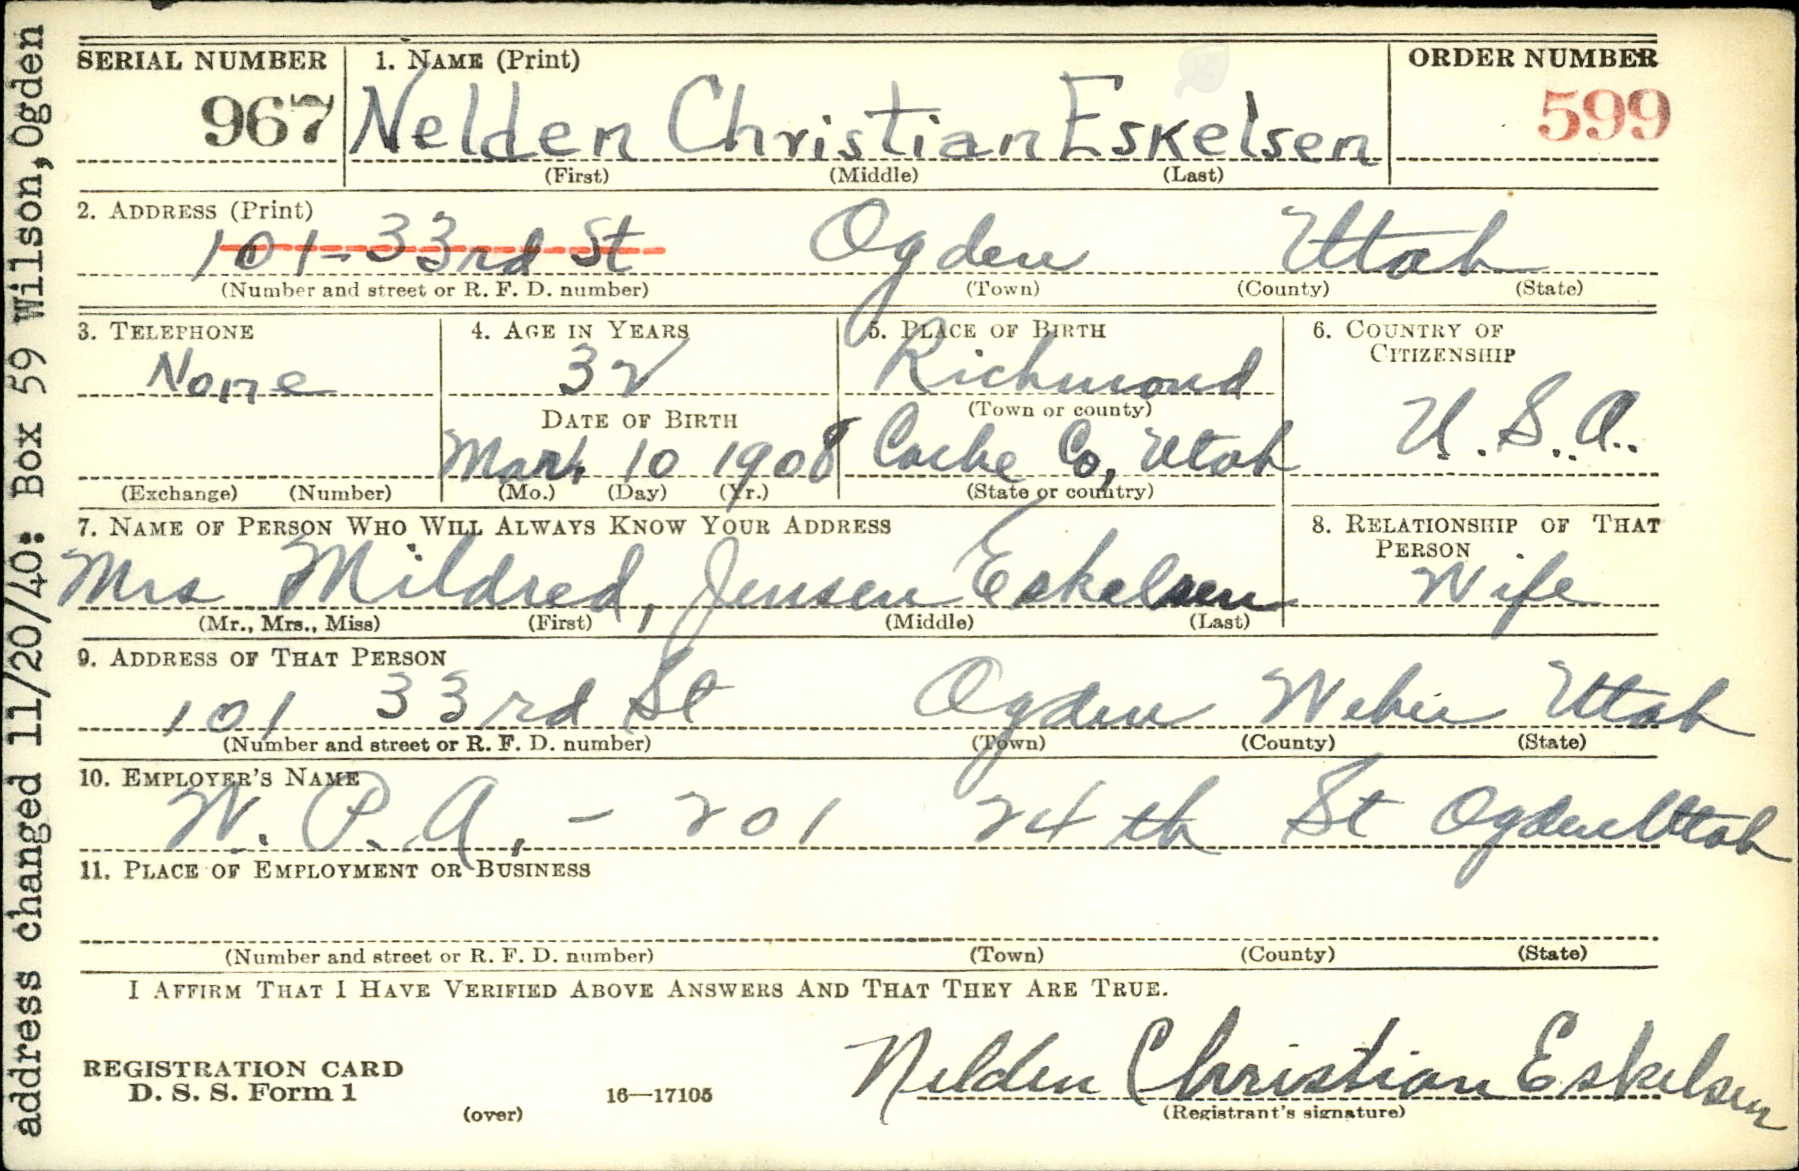 address changed 11/20/40: Box 59 Wilson, Ogden
SERIAL NUMBER
967
1. NAME (Print)
Nelden Christian Eskelsen
(First) (Middle) (Last)
ORDER NUMBER
599
2. ADDRESS (Print)
101 - 33rd St Ogden Utah
(Number and street or R. F. D. number) (Town) (County) (State)
3. TELEPHONE
None
(Exchange) (Number)
4. AGE IN YEARS
32
DATE OF BIRTH
Mar. 10 1908
(Mo.) (Day) (Yr.)
5. PLACE OF BIRTH
Richmond
(Town or county)
Cache Co, Utah
(State or country)
6. COUNTRY OF
CITIZENSHIP
U.S.A.
7. NAME OF PERSON WHO WILL ALWAYS KNOW YOUR ADDRESS
Mrs Mildred, Jensen Eskelsen
(Mr., Mrs., Miss) (First) (Middle) (Last)
8. RELATIONSHIP OF THAT
PERSON
Wife
9. ADDRESS OF THAT PERSON
101 33rd St Ogden Weber Utah
(Number and street or R. F. D. number) (Town) (County) (State)
10. EMPLOYER'S NAME
W. P. A. - 201 24th St Ogden Utah
11. PLACE OF EMPLOYMENT OR BUSINESS
(Number and street or R. F. D. number) (Town) (County) (State)
I AFFIRM THAT I HAVE VERIFIED ABOVE ANSWERS AND THAT THEY ARE TRUE.
REGISTRATION CARD
D. S. S. Form 1
(over)
16—17105
Nelden Christian Eskelsen
(Registrant's signature)